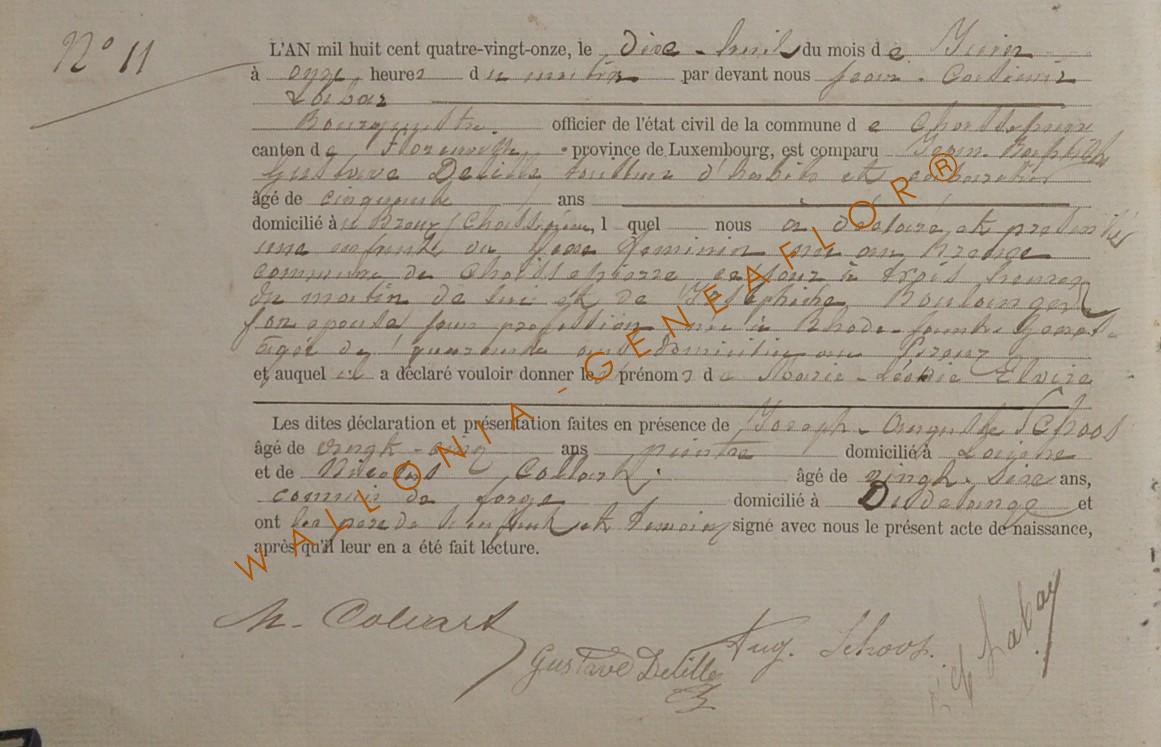 N° 11
L'AN mil huit cent quatre-vingt-onze, le dix-huit du mois de Juin
à onze heures du matin par devant nous Jean-Casimir
Labar
Bourgmestre officier de l'état civil de la commune de Chassepierre
canton de Florenville province de Luxembourg, est comparu Jean-Baptiste
Gustave Delille tailleur d'habits et cabaretier
âgé de cinquante ans
domicilié à Chassepierre, lequel nous a déclaré et présenté
une enfant du sexe féminin née au
commune de Chassepierre ce jour à trois heures
du matin de lui et de Joséphine Boulanger
son épouse sans profession née à Rhode-Sainte-Genèse
âgée de quarante ans domiciliée au
et auquel il a déclaré vouloir donner les prénoms de Marie-Léonie Elvire
Les dites déclaration et présentation faites en présence de Joseph-Auguste Schoos
âgé de vingt-cinq ans peintre domicilié à
et de Nicolas âgé de vingt-six ans,
commis de forge domicilié à Dudelange et
ont les père de l'enfant et témoins signé avec nous le présent acte de naissance,
après qu'il leur en a été fait lecture.
Gustave Delille
Aug. Schoos.
WALLONIA-GENEAFLOR®